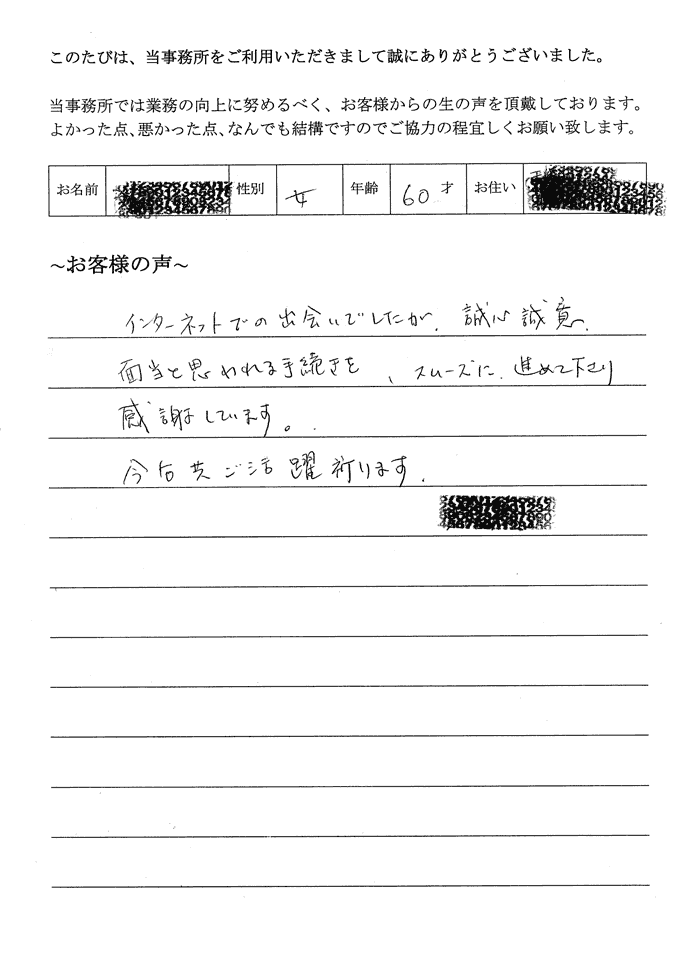 このたびは、当事務所をご利用いただきまして誠にありがとうございました。
当事務所では業務の向上に努めるべく、お客様からの生の声を頂戴しております。
よかった点、悪かった点、なんでも結構ですのでご協力の程宜しくお願い致します。
お名前 性別 女 年齢 60 才 お住い
~お客様の声~
インターネットでの出会いでしたが、誠心誠意、
面当と思われる手続きを、スムーズに、進めて下さり
感謝しています。
今后共ご活躍祈ります。